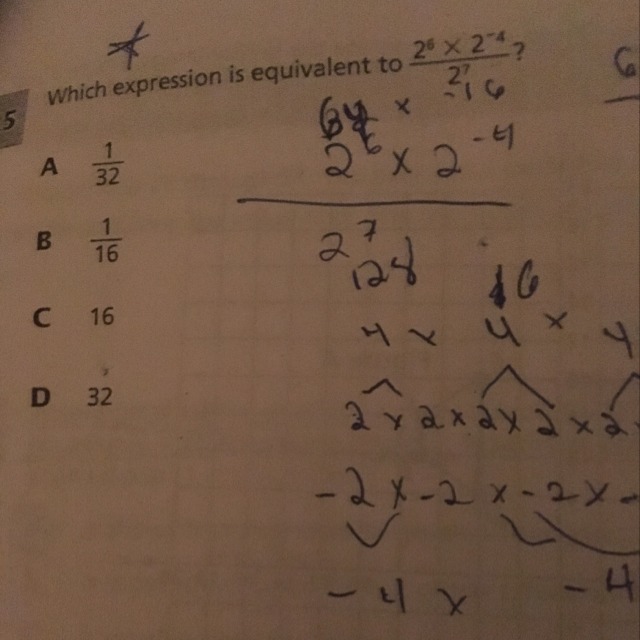 5 Which expression is equivalent to 2⁶ × 2⁻⁴ / 2⁷ ?
A 1/32
B 1/16
C 16
D 32
6
64 × -16
2⁶ × 2⁻⁴
2⁷
128 16
4 × 4 × 4
2 × 2 × 2 × 2 × 2
-2 × -2 × -2 × -
-4 × -4